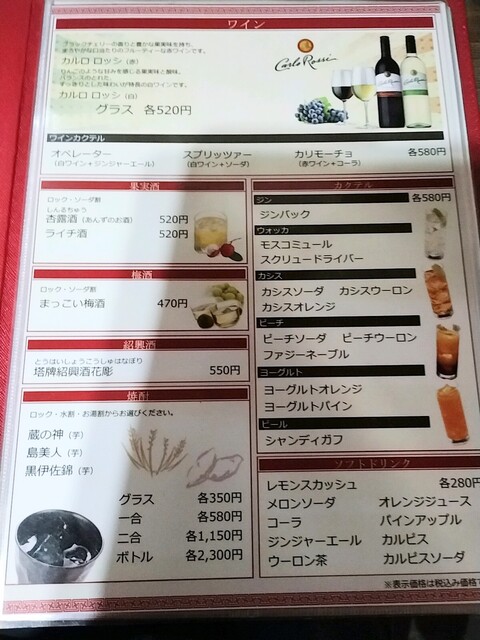 ワイン
ブラックチェリーの香りと豊かな果実味を持ち、
まろやかな口当たりのフルーティーな赤ワインです。
カルロ ロッシ (赤)
りんごのような甘みを感じる果実味と酸味。
バランスのとれた、
すっきりとした味わいが特長の白ワインです。
カルロ ロッシ (白)
グラス 各520円
Carlo Rossi
ワインカクテル
オペレーター
(白ワイン+ジンジャーエール)
スプリッツァー
(白ワイン+ソーダ)
カリモーチョ
(赤ワイン+コーラ)
各580円
果実酒
ロック・ソーダ割
しんるちゅう
杏露酒 (あんずのお酒) 520円
ライチ酒 520円
梅酒
ロック・ソーダ割
まっこい梅酒 470円
紹興酒
とうはいしょうこうしゅはなほり
塔牌紹興酒花彫 550円
焼酎
ロック・水割・お湯割からお選びください。
蔵の神 (芋)
島美人 (芋)
黒伊佐錦 (芋)
グラス 各350円
一合 各580円
二合 各1,150円
ボトル 各2,300円
カクテル
ジン 各580円
ジンバック
ウォッカ
モスコミュール
スクリュードライバー
カシス
カシスソーダ カシスウーロン
カシスオレンジ
ピーチ
ピーチソーダ ピーチウーロン
ファジーネーブル
ヨーグルト
ヨーグルトオレンジ
ヨーグルトパイン
ビール
シャンディガフ
ソフトドリンク
レモンスカッシュ 各280円
メロンソーダ オレンジジュース
コーラ パインアップル
ジンジャーエール カルピス
ウーロン茶 カルピスソーダ
※表示価格は税込み価格で